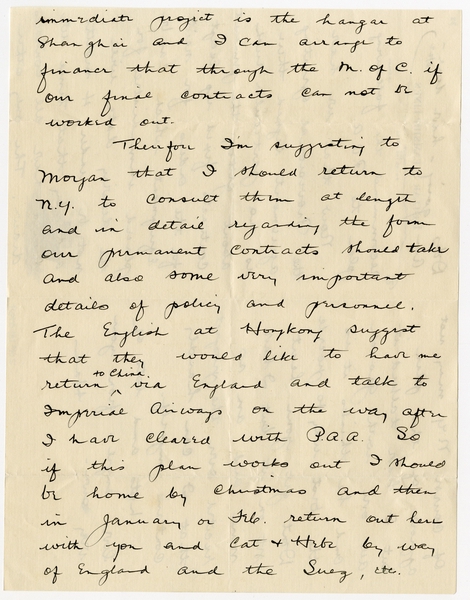 immediate project is the hangar at
Shanghai and I can arrange to
finance that through the M. of C. if
our final contracts can not be
worked out.
Therefore I'm suggesting to
Morgan that I should return to
N.Y. to consult them at length
and in detail regarding the form
our permanent contracts should take
and also some very important
details of policy and personnel.
The English at Hongkong suggest
that they would like to have me
return to China via England and talk to
Imperial Airways on the way after
I have cleared with P.A.A. So
if this plan works out I should
be home by Christmas and then
in January or Feb. return out here
with you and Cat & Hebe by way
of England and the Suez, etc.